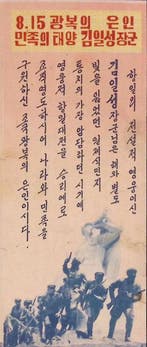 8.15 광복의 은인
민족의 태양 김일성장군
항일의 전설적 영웅이신
김일성장군님은 해와 별도
빛을 잃었던 일제식민지
통치의 가장 암담하던 시기에
영웅적 항일대전을 승리에로
조직령도하시여 나라와 민족을
구원하신 조국광복의 은인이시다!